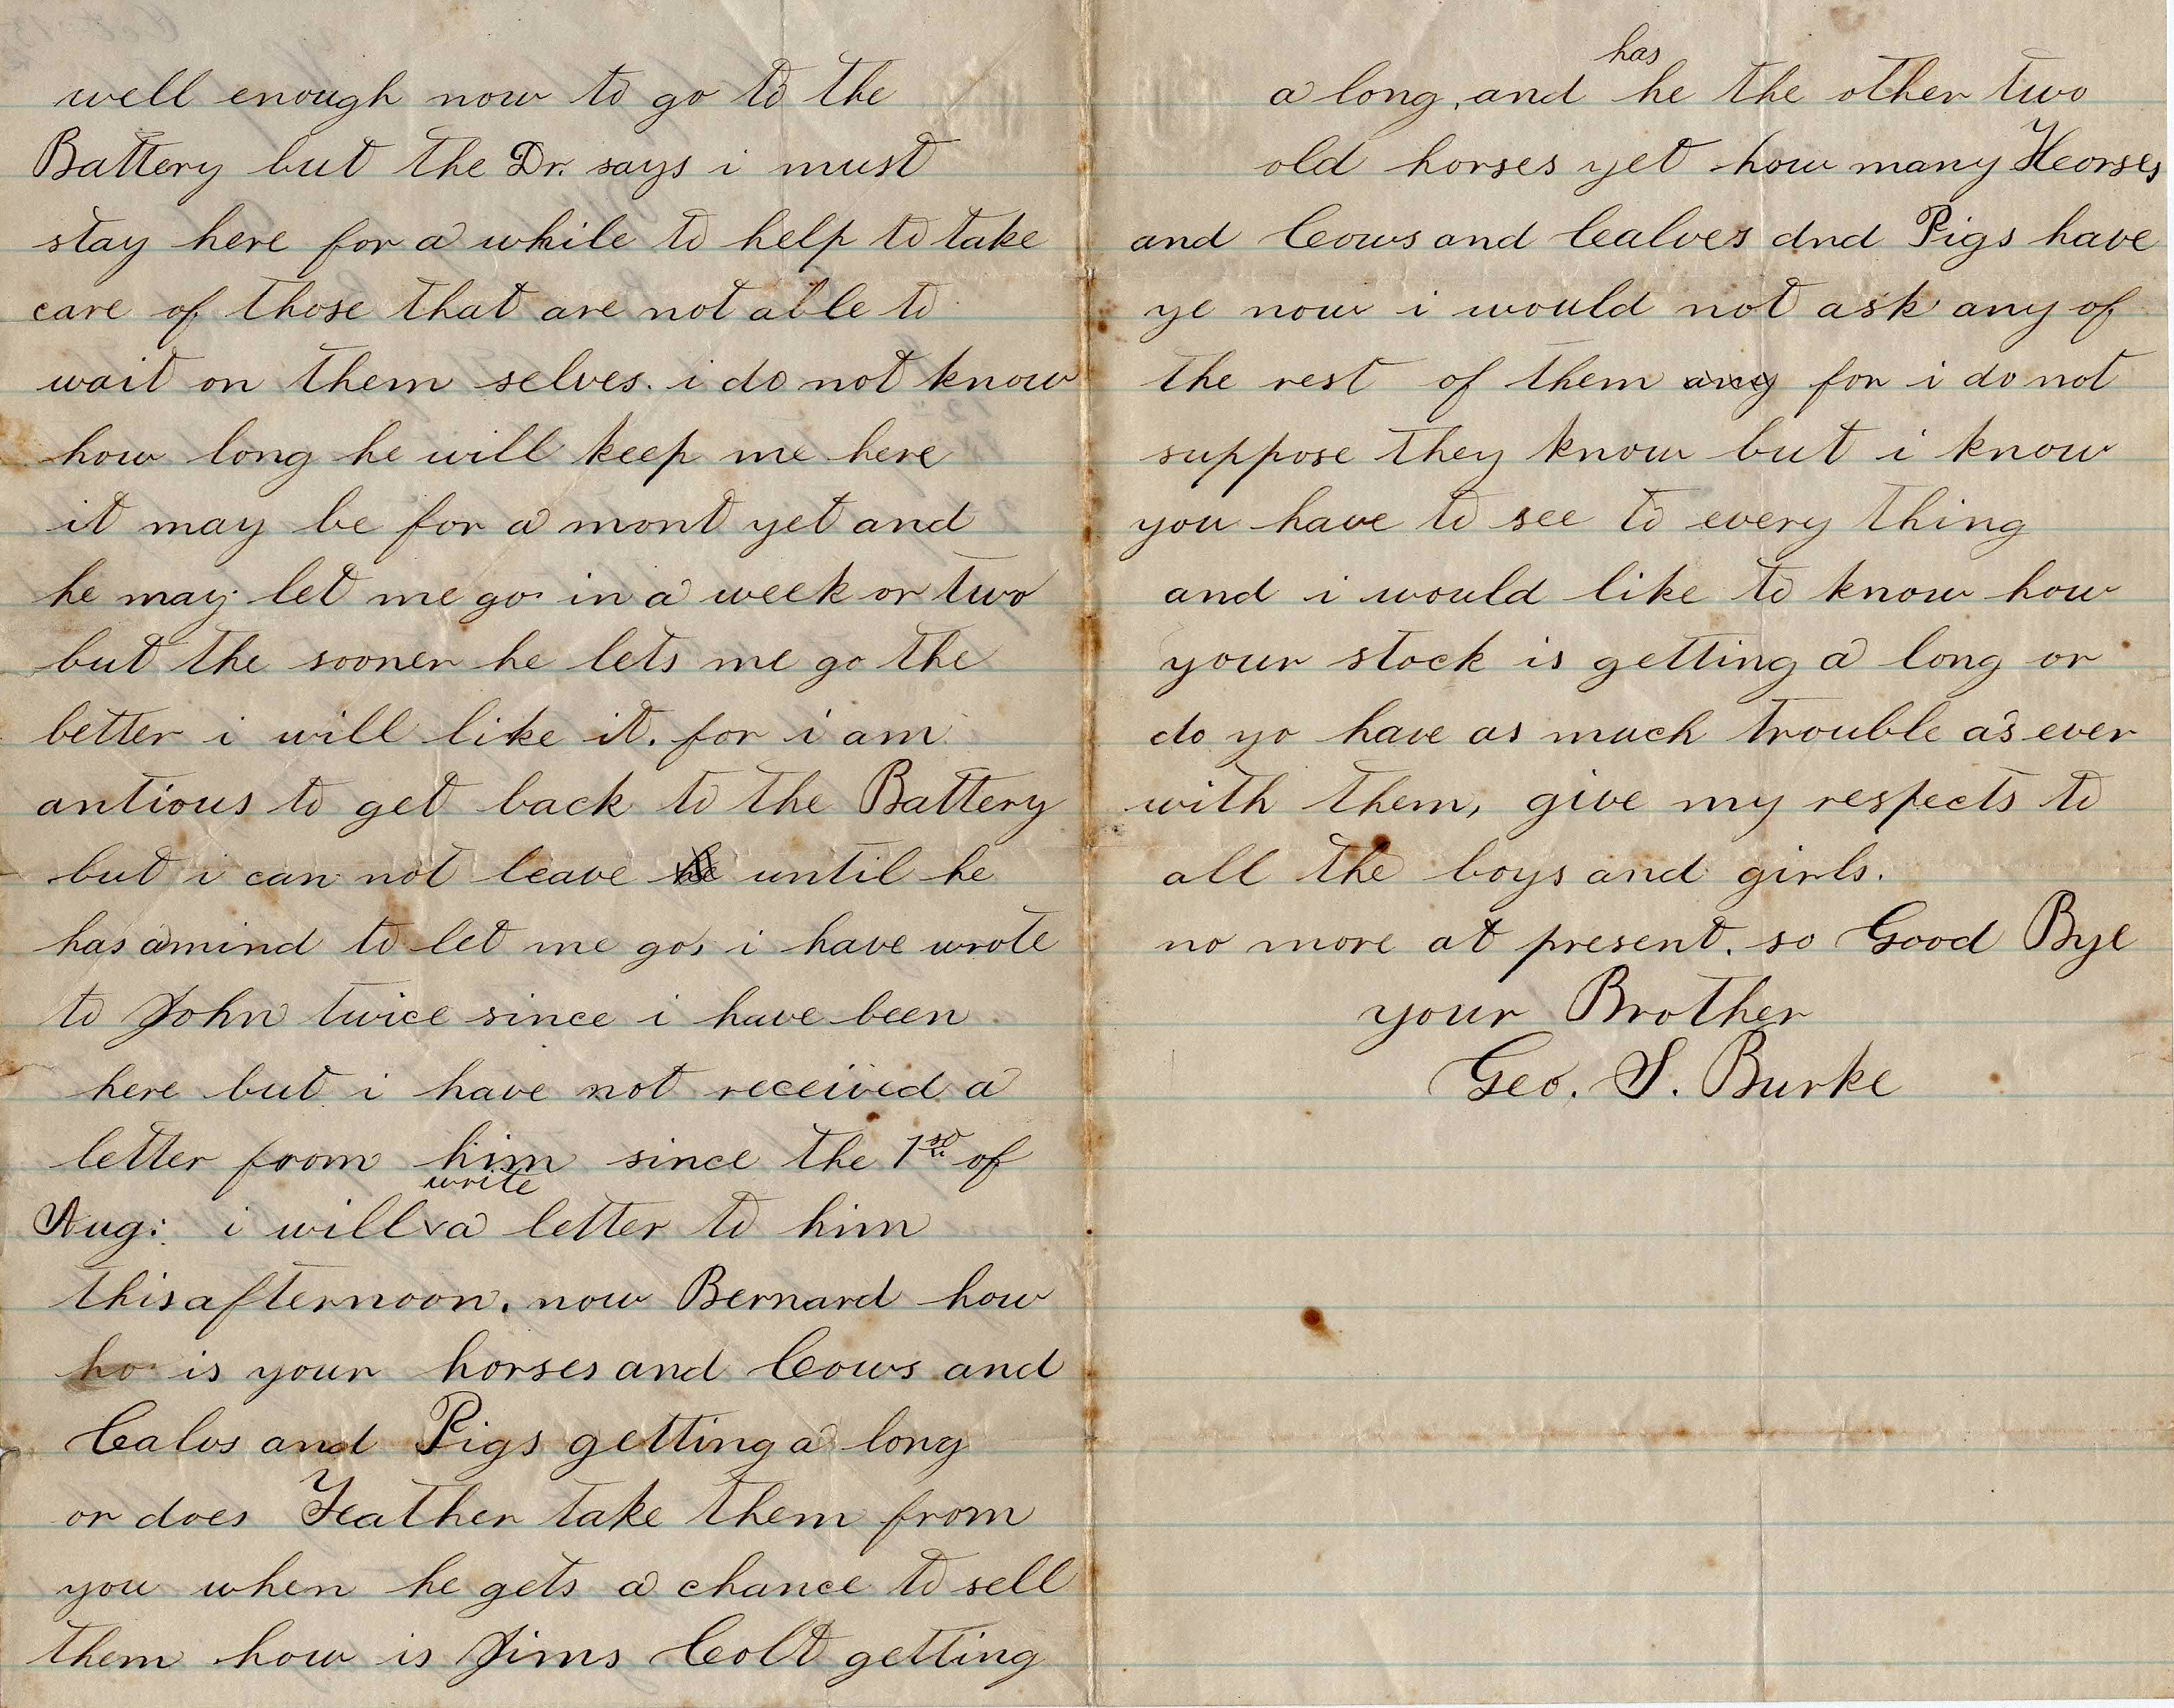 well enough now to go to the
Battery but the Dr. says i must
stay here for a while to help to take
care of those that are not able to
wait on them selves. i do not know
how long he will keep me here
it may be for a mont yet and
he may let me go in a week or two
but the sooner he lets me go the
better i will like it. for i am
antious to get back to the Battery
but i can not leave until he
has a mind to let me go, i have wrote
to John twice since i have been
here but i have not received a
letter from him since the 1st of
Aug: i will write a letter to him
this afternoon. now Bernard how
ho is your horses and Cows and
Calvs and Pigs getting a long
or does Feather take them from
you when he gets a chance to sell
them how is Jims Colt getting
a long, and has he the other two
old horses yet how many Heorses
and Cows and Calves and Pigs have
ye now i would not ask any of
the rest of them any for i do not
suppose they know but i know
you have to see to every thing
and i would like to know how
your stock is getting a long or
do yo have as much trouble as ever
with them, give my respects to
all the boys and girls.
no more at present. so Good Bye
your Brother
Geo. S. Burke